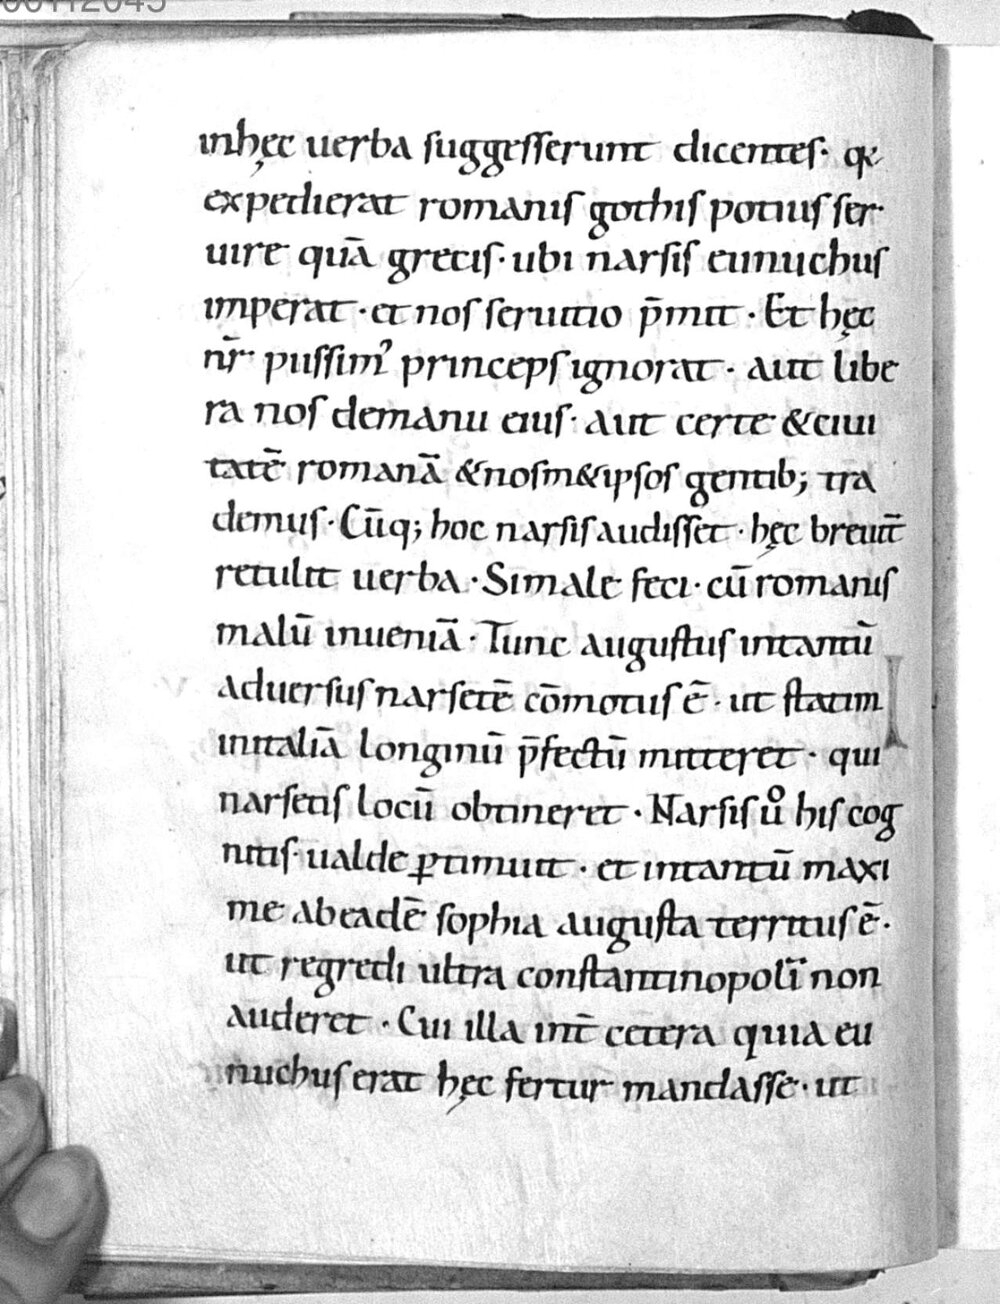 inhęc uerba suggesserunt dicentes· q̄
expedierat romanis gothis potius ser·
uire quā grecis· ubi narsis eunuchus
imperat · et nos seruitio p̄mit · Et hęc
nr̄ piissim᾽ princeps ignorat · aut libe
ra nos demanu eius· aut certe &ciui
tatē romanā &nosm&ipsos gentib; tra
demus· Cūq; hoc narsis audisset · hęc breuit̄
retulit uerba · Simale feci· cū romanis
malū inueniā · Tunc augustus intantū
aduersus narsetē cōmotus ē · ut statim
initaliā longinū p̄fectū mitteret · qui
narsetis locū obtineret · Narsis uͦ his cog
nitis· ualde ꝑtimuit · et intantū maxi
me abeadē sophia augusta territus ē ·
ut regredi ultra constantinopolī non
auderet · Cui illa int̄ cetera quia eu
nuchus erat hęc fertur mandasse · ut